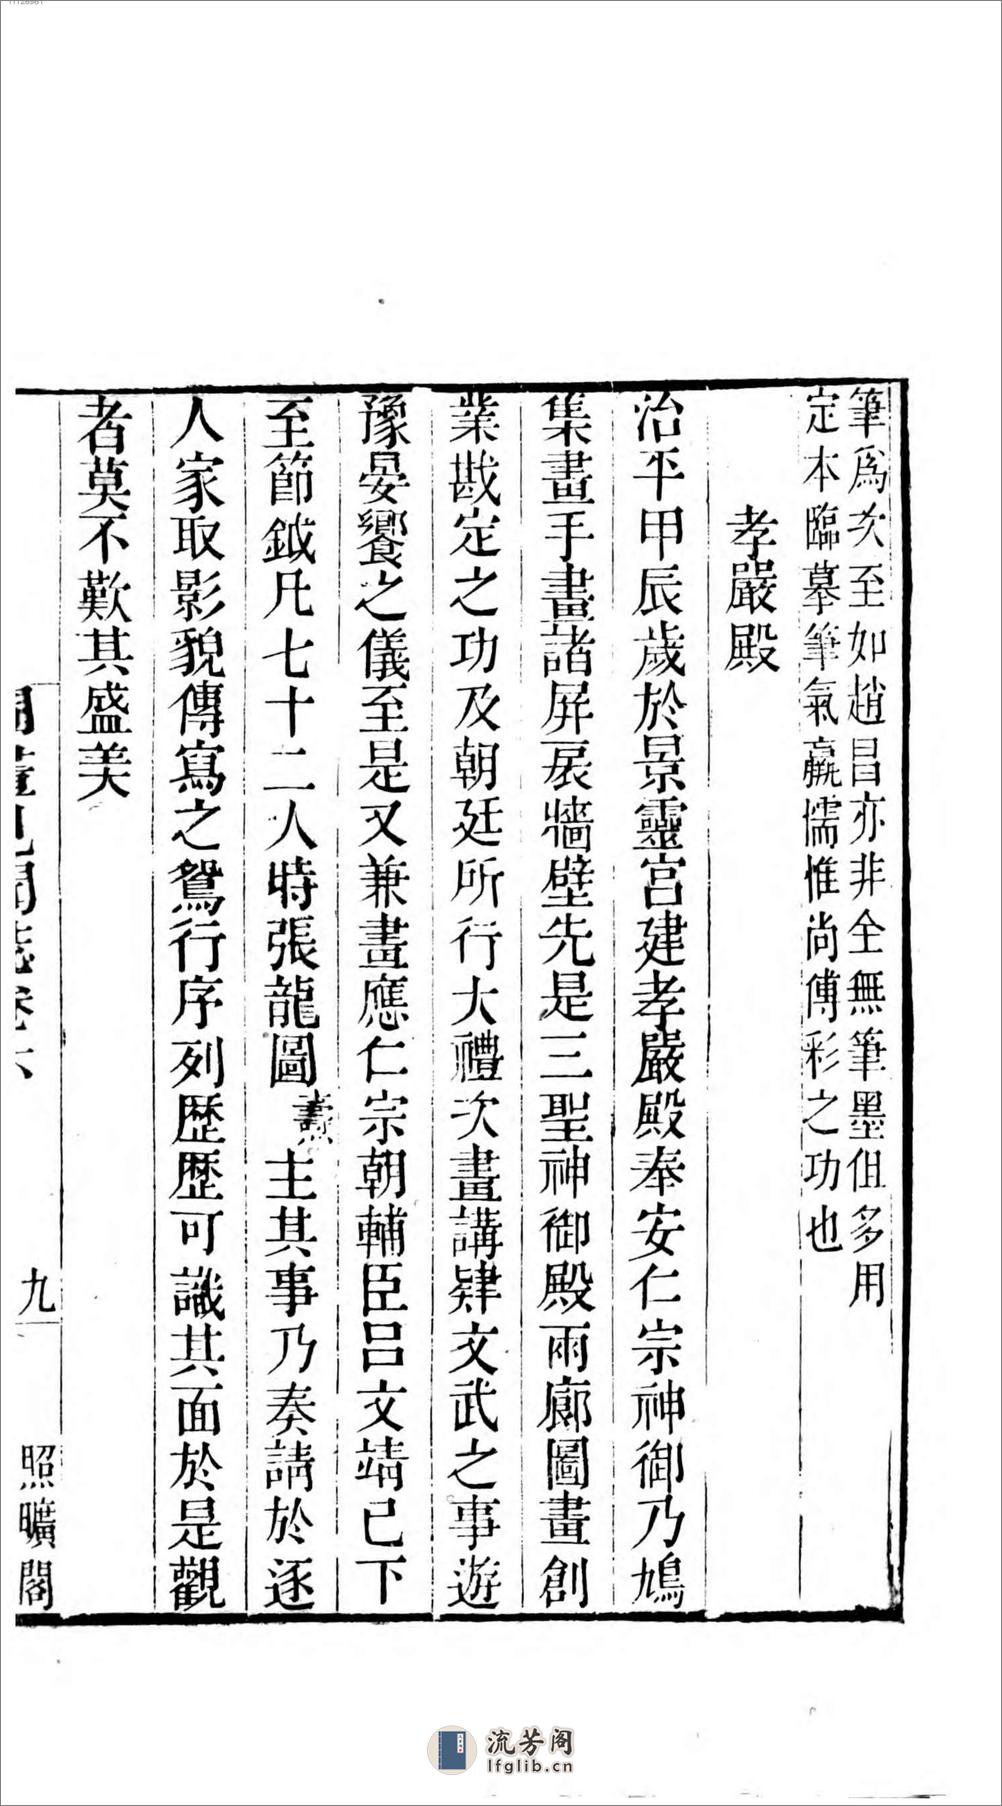 筆爲次至如趙昌亦非全無筆墨但多用
定本臨摹筆氣羸懦惟尚傅彩之功也
孝嚴殿
治平甲辰歲於景靈宮建孝嚴殿奉安仁宗神御乃鳩
集畫手畫諸屏扆牆壁先是三聖神御殿兩廊圖畫創
業戡定之功及朝廷所行大禮次畫講肄文武之事遊
豫晏饗之儀至是又兼畫應仁宗朝輔臣呂文靖已下
至節鉞凡七十二人時張龍圖燾主其事乃奏請於逐
人家取影貌傳寫之鴛行序列歷歷可識其面於是觀
者莫不歎其盛美
見聞誌卷六
九
照曠閣
流芳阁
lfglib.cn